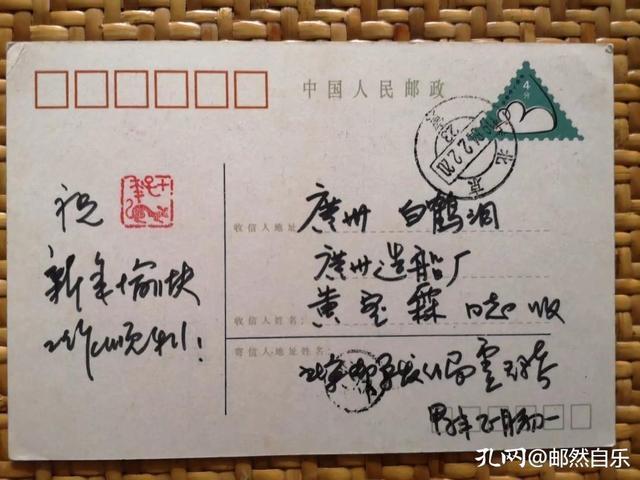 中国人民邮政
4分
北京
祝
新年愉快
工作顺利!
收信人地址:
广州 白鹤洞
广州造船厂
收信人姓名:
黄宝霖 同志 收
寄信人地址姓名:
北京
甲子年正月初一
孔网@邮然自乐